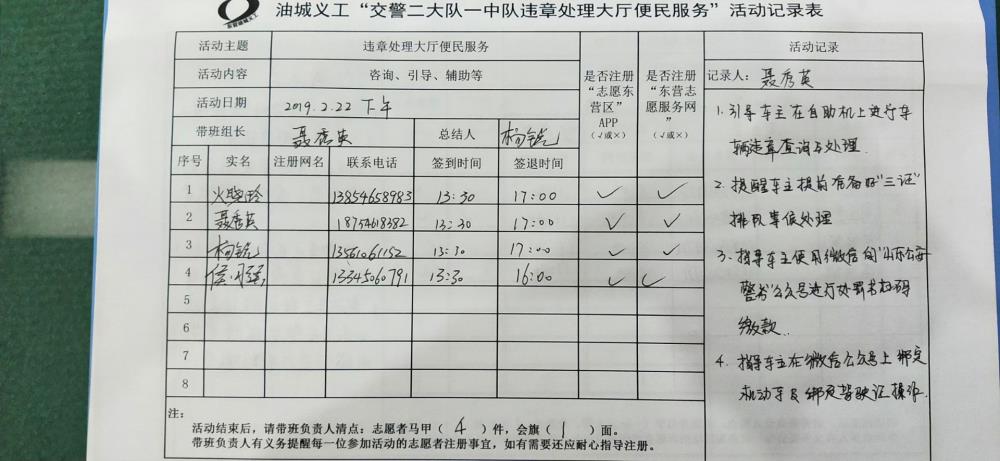 油城义工“交警二大队一中队违章处理大厅便民服务”活动记录表
东营油城义工
活动主题 违章处理大厅便民服务 是否注册“志愿东营区”APP（√或×） 是否注册“东营志愿服务网”（√或×） 活动记录
活动内容 咨询、引导、辅助等 记录人：聂秀英
活动日期 2019.2.22 下午
带班组长 聂秀英 总结人
序号 实名 注册网名 联系电话 签到时间 签退时间
1 13854658983 13:30 17:00 ✓ ✓
2 聂秀英 18754618382 13:30 17:00 ✓ ✓
3 13561061152 13:30 17:00 ✓ ✓
4 13345060791 13:30 16:00 ✓ ✓
5
6
7
8
1. 引导车主在自助机上进行车
辆违章查询与处理.
2. 提醒车主提前准备好“三证”
排队等候处理
3. 指导车主使用微信的“山东公安
警务”公众号进行处罚书扫码
缴款..
4. 指导车主在微信公众号上绑定
机动车及绑定驾驶证操作.
注：
活动结束后，请带班负责人清点：志愿者马甲（ 4 ）件，会旗（ 1 ）面。
带班负责人有义务提醒每一位参加活动的志愿者注册事宜，如有需要还应耐心指导注册。